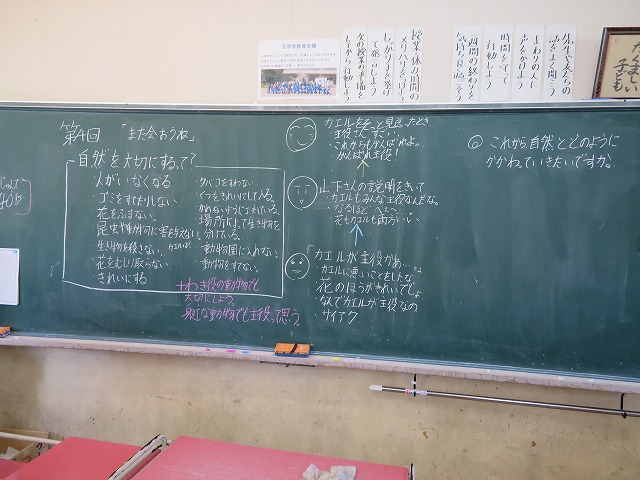 第4回 「また会おうね」
自然を大切にするって?
人がいなくなる
・ゴミをすてたりしない
花をふまない。
・生き物を殺さない。
・花をむしり取らない
・きれいにする
タバコをすわない
場所によって生き物を
分けている。
・動物園に入れない
・動物をすてない。
十わき役の動物でも
大切にしよう。
身近な動物でも主役って思う。
カエルをそっと見送ったとき、
・これからもがんばれよ。
がんばれ主役!
山下さんの説明をきいて
・カエルもみんな主役なんだな。
・なるほど へぇ〜。
・花もカエルも両方いい
「カエルが主役かあ…。」
・カエルに悪いことをしたな。
・花のほうがきれいでしょ
・なんでカエルが主役なの
・サイアク
◎これから、自然とどのように
かかわっていきたいですか。
授業と休み時間の
メリハリをつけよう
しっかり手を挙げ
て発言しよう
次の授業の準備を
してから行動しよう
先生や友だちの
話をよく聞こう
まわりの人に
声をかけよう
時間を守って
行動しよう
たくましい
子ども